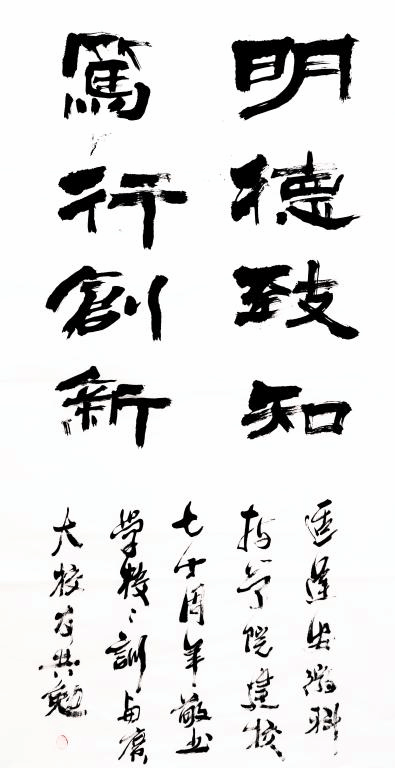 明德致知
篤行創新
适逢安徽科
技学院建校
七十周年敬书
學校〻訓与廣
大校友共勉